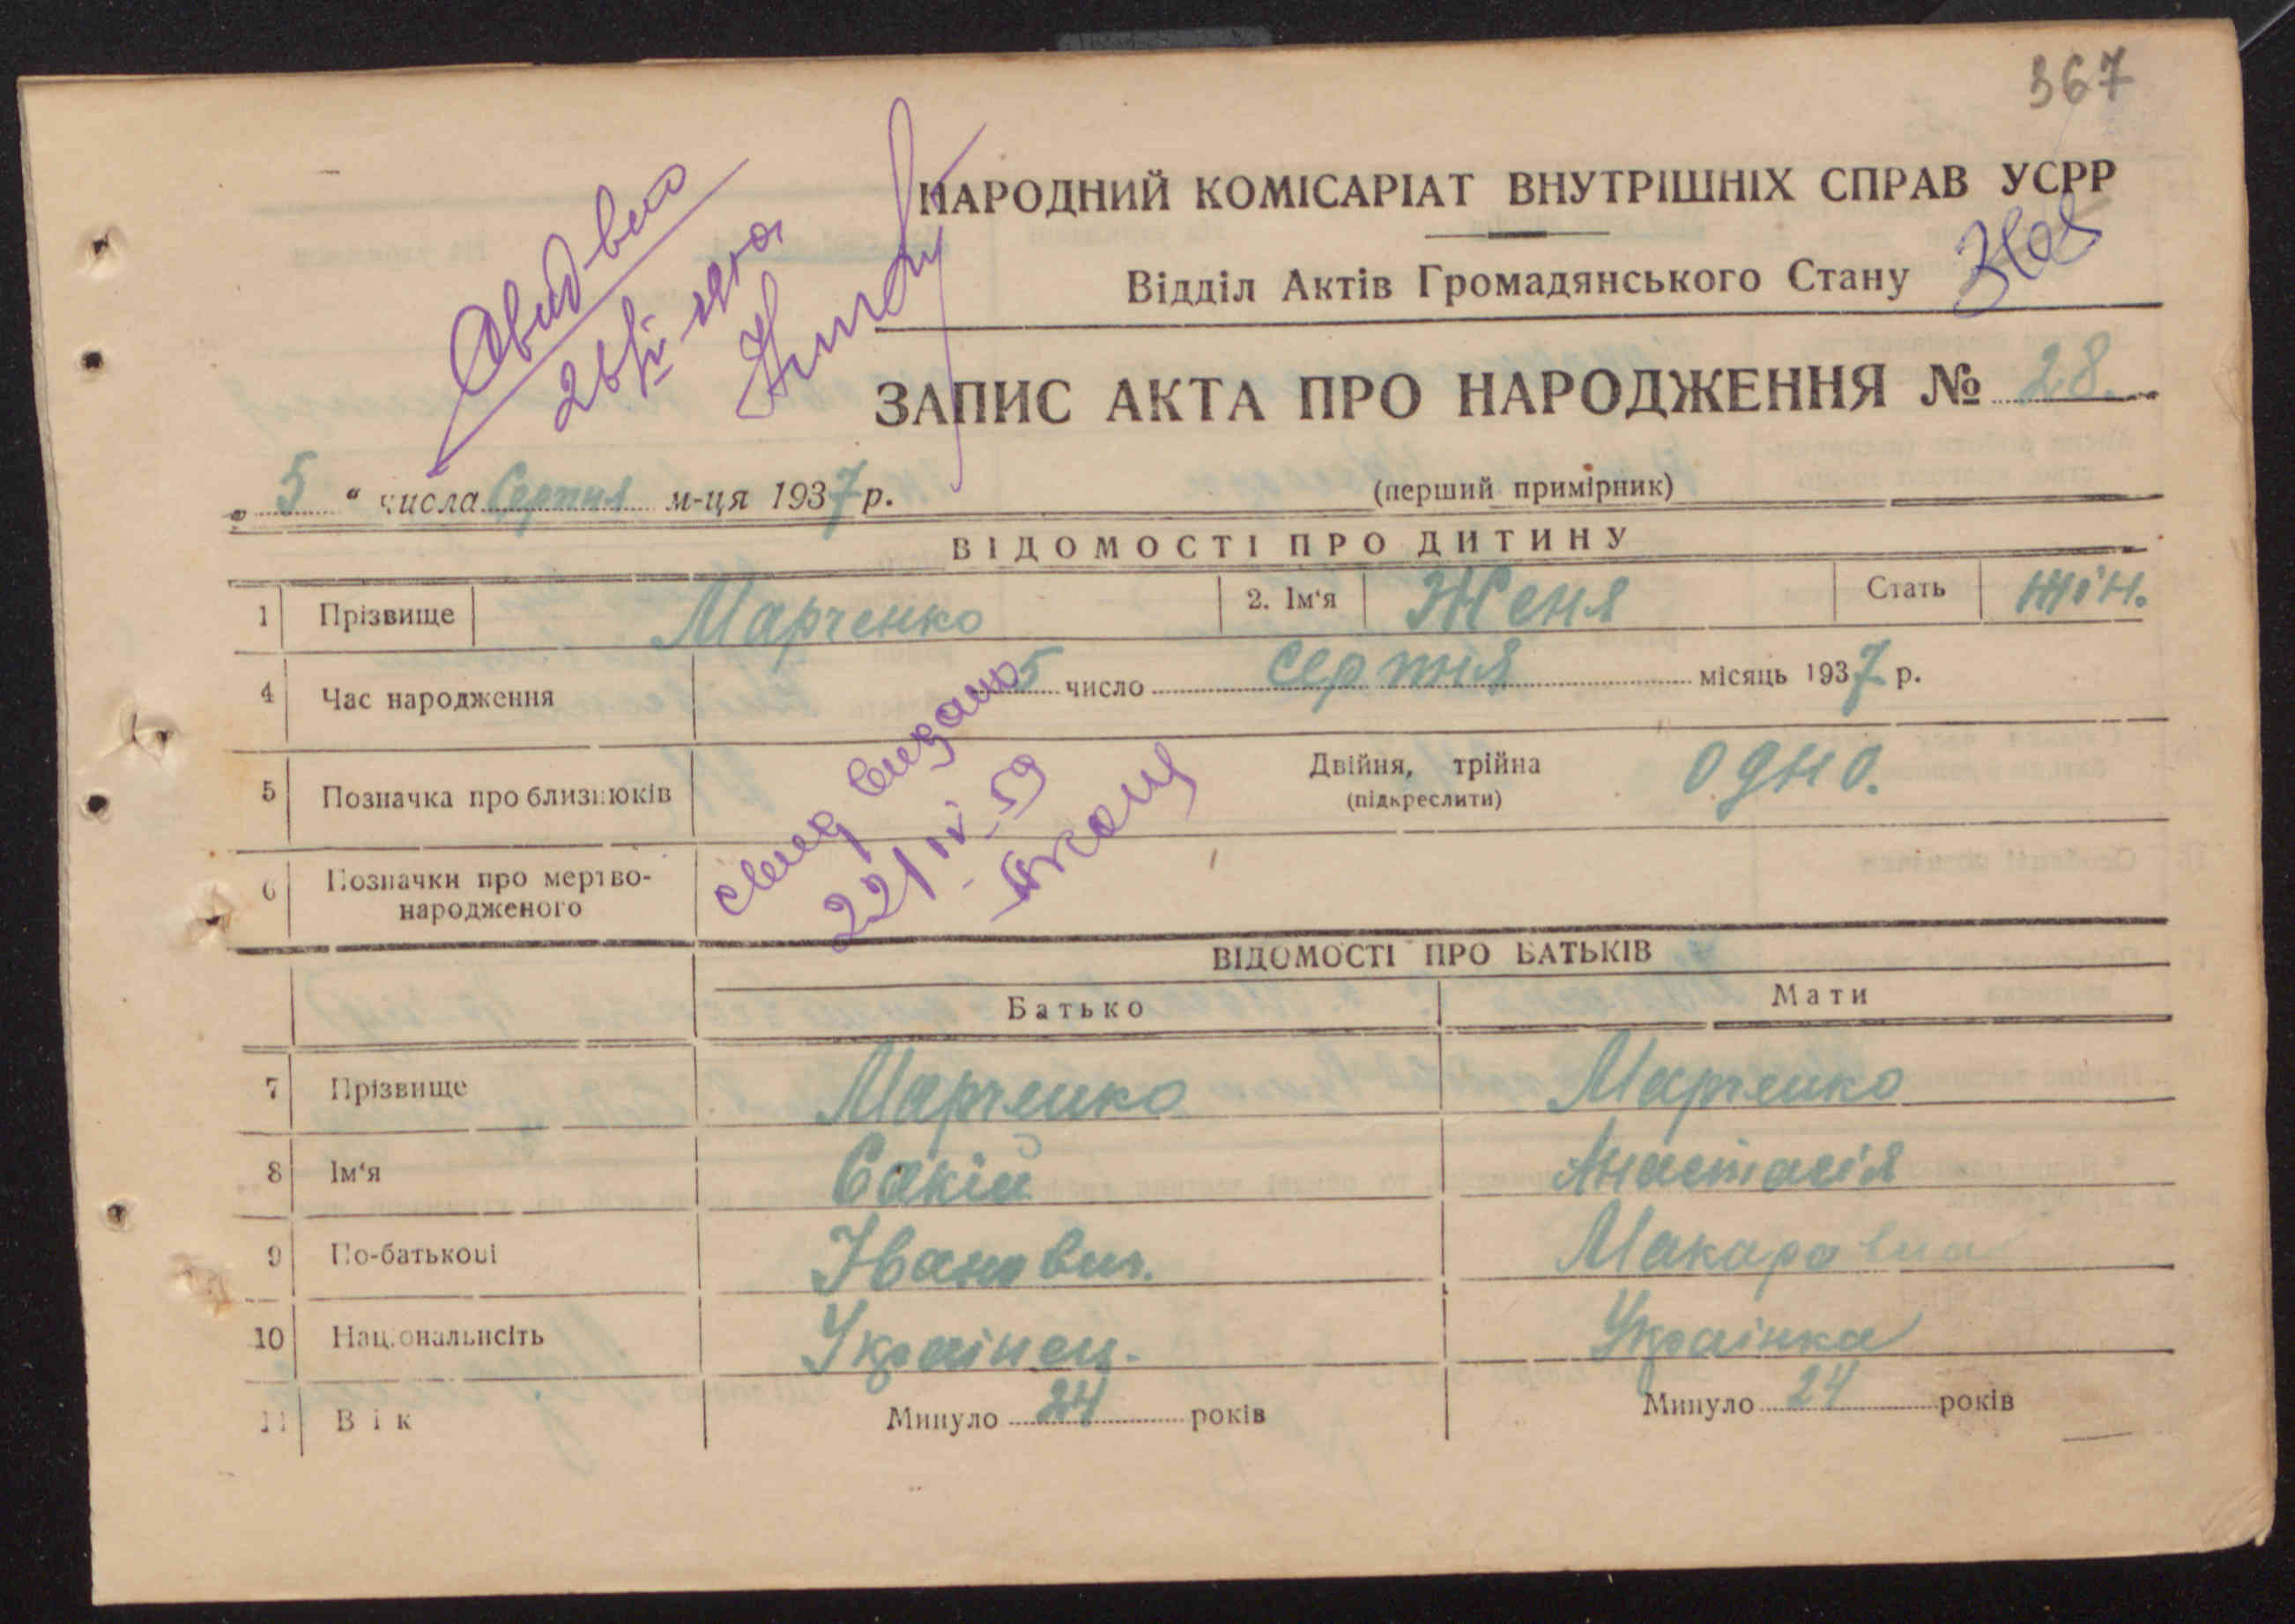 367
НАРОДНИЙ КОМІСАРІАТ ВНУТРІШНІХ СПРАВ УСРР
Відділ Актів Громадянського Стану
ЗАПИС АКТА ПРО НАРОДЖЕННЯ № 28.
„ 5 “ числа Серпня м-ця 1937 р.
(перший примірник)
ВІДОМОСТІ ПРО ДИТИНУ
1 Прізвище Марченко 2. Ім‘я Женя Стать жін.
4 Час народження 5 число серпня місяць 1937 р.
5 Позначка про близнюків Двійня, трійна (підкреслити) одно.
6 Позначки про мертво-
народженого
свид
22/IV-59
ВІДОМОСТІ ПРО БАТЬКІВ
Батько Мати
7 Прізвище Марченко Марченко
8 Ім‘я Анастасія
9 По-батькові Іванович. Макаровна
10 Національнсіть Українец. Українка
11 Вік Минуло 24 років Минуло 24 років